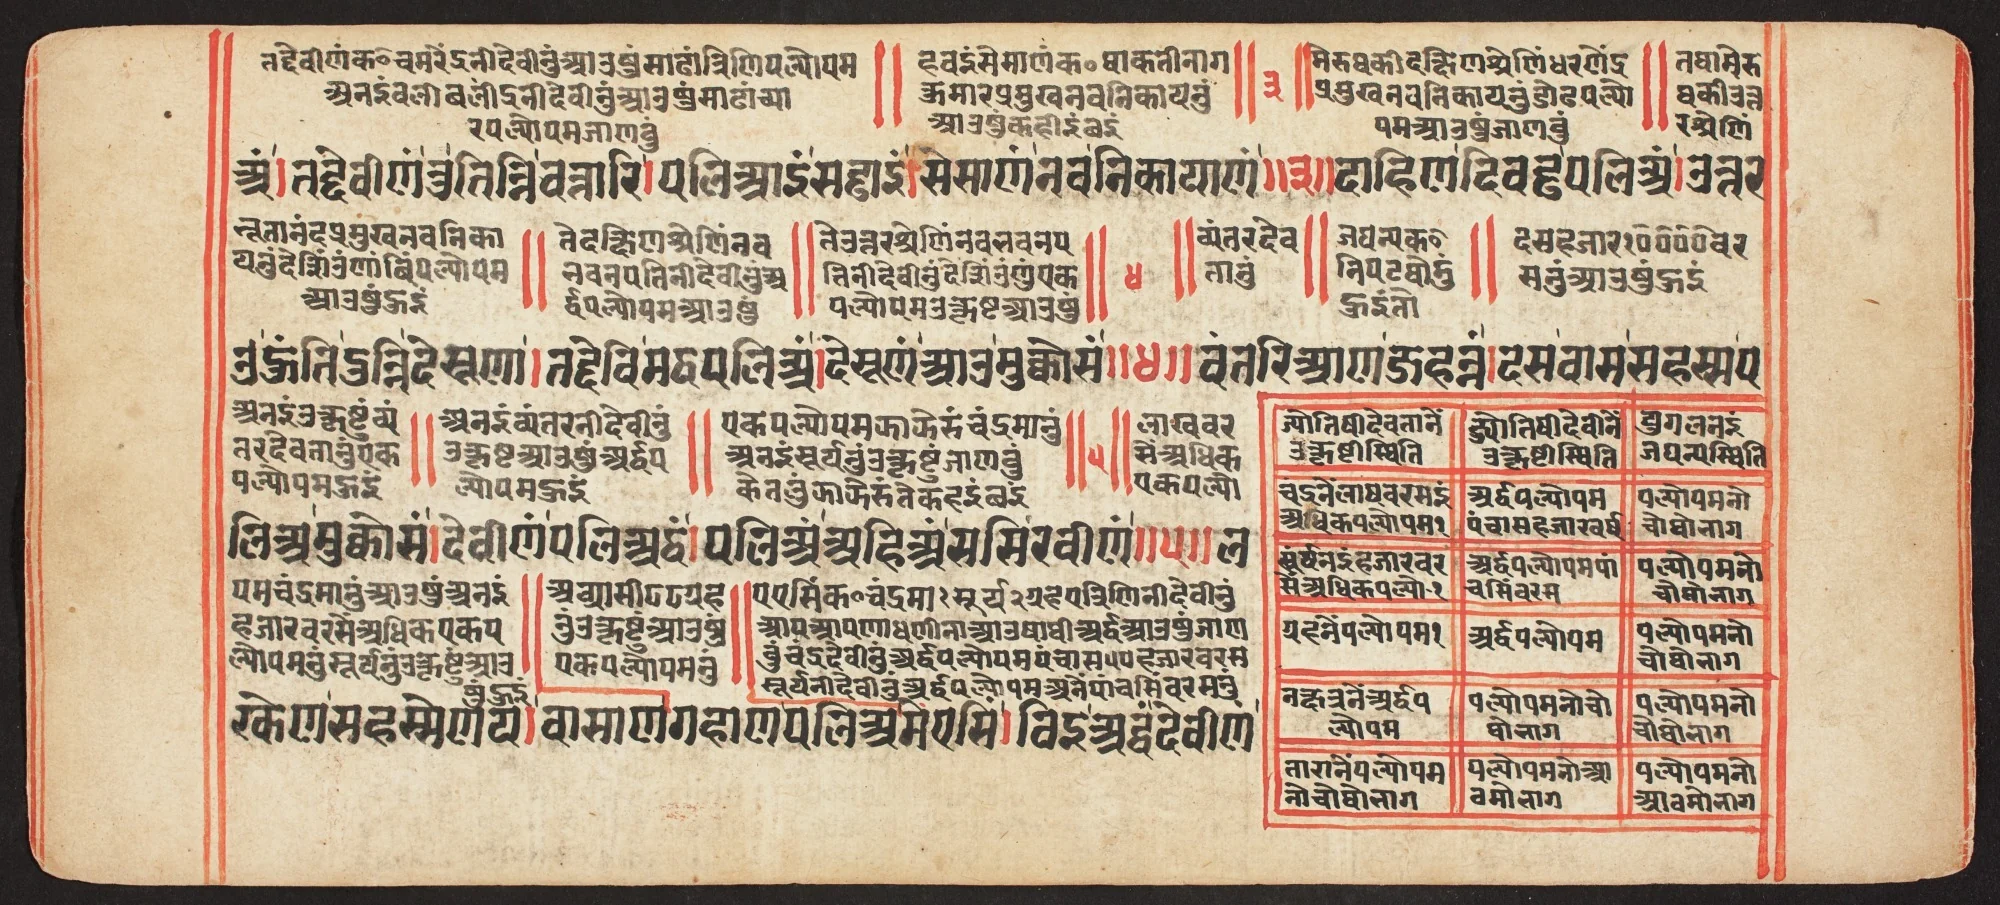 तद्देवीणं क० चमरेंद्रनी देवीनुं आउषुं साढां त्रिणि पल्योपम
अनइं बली बलींद्रनी देवीनुं आउषुं साढां च्या
र पल्योपम जाणवुं
हवइं सेसाणं क० थाकती नाग
कुमार प्रमुख नव निकायनुं
आउषुं कहीइं छइं
३
मेरु थकी दक्षिण श्रेणिं धरणेंद्र
प्रमुख नव निकायनुं डोढ पल्यो
पम आउषुं जाणवुं
तथा मेरु
थकी उत्त
र श्रेणिं
अं। तद्देवीणं तु तिन्नि चत्तारि। पलिआइं सड्ढाइं। सेसाणं नव निकायाणं॥३॥ दाहिण दिवड्ढ पलिअं। उत्तर
भूतानंद प्रमुख नव निका
यनुं देसे ऊंणां बिं पल्योपम
आउषुं हुइं
ते दक्षिण श्रेणिं नव
भवनपतिनी देवीनुं अ
र्द्ध पल्योपम आउषुं
ते उत्तर श्रेणिं नव भवनप
तिनी देवीनुं देसे ऊंणुं एक
पल्योपम उत्कृष्ट आउषुं
४
व्यंतर देव
तानुं
जघन्य क०
निपट थोडुं
हुइं तो
दस हजार १०००० वर
सनुं आउषुं हुइं
उ हुंति दुन्नि देसूणा। तद्देवि मद्ध पलिअं। देसूणं आउ मुक्कोसं॥४॥ वंतरिआण जहन्नं। दस वास सहस्स प
अनइं उत्कृष्टुं व्यं
तर देवतानुं एक
पल्योपम हुइं
अनइं व्यंतरनी देवीनुं
उत्कृष्ट आउषुं अर्द्ध प
ल्योपम हुइं
एक पल्योपम झाझेरुं चंद्रमानुं
अनइं सूर्यनुं उत्कृष्टुं जाणवुं
केतलुं झाझेरुं ते कहइं छइं
५
लाख वर
सें अधिक
एक पल्यो
लिअ मुक्कोसं। देवीणं पलिअद्धं। पलिअं अहिअं ससि रवीणं॥५॥ ल
पम चंद्रमानुं आउषुं अनइं
हजार वरसें अधिक एक प
ल्योपमनुं सूर्यनुं उत्कृष्टुं आउ
षुं हुइं
अठ्यासी ८८ ग्रह
नुं उत्कृष्टुं आउषुं
एक पल्योपमनुं
एएसिं क० चंद्रमा १ सूर्य २ ग्रह ए त्रिणिनी देवीनुं
आप आपणा धणीना आउषाथी अर्द्ध आउषुं जाण
वुं चंद्र देवीनुं अर्द्ध पल्योपम पंचास ५० हजार वरस
सूर्यनी देवीनुं अर्द्ध पल्योपम अने पांचसें वरसनुं
रकेण सहस्सेण य। वासाण गहाण पलिअमेएसिं। ठिइ अद्धं देवीणं
ज्योतिषी देवतानें उत्कृष्टी स्थिति
ज्योतिषी देवीनें उत्कृष्टी स्थिति
युगलनइं जघन्य स्थिति
चंद्रनें लाष वरसइं अधिक पल्योपम १
अर्द्ध पल्योपम पंचास हजार वर्ष
पल्योपमनो चोथो भाग
सूर्यनइं हजार वरसें अधिक पल्यो. १
अर्द्ध पल्योपम पांचसें वरस
पल्योपमनो चोथो भाग
ग्रहनें पल्योपम १
अर्द्ध पल्योपम
पल्योपमनो चोथो भाग
नक्षत्रनें अर्द्ध पल्योपम
पल्योपमनो चोथो भाग
पल्योपमनो चोथो भाग
तारानें पल्योपमनो चोथो भाग
पल्योपमनो आठमो भाग
पल्योपमनो आठमो भाग